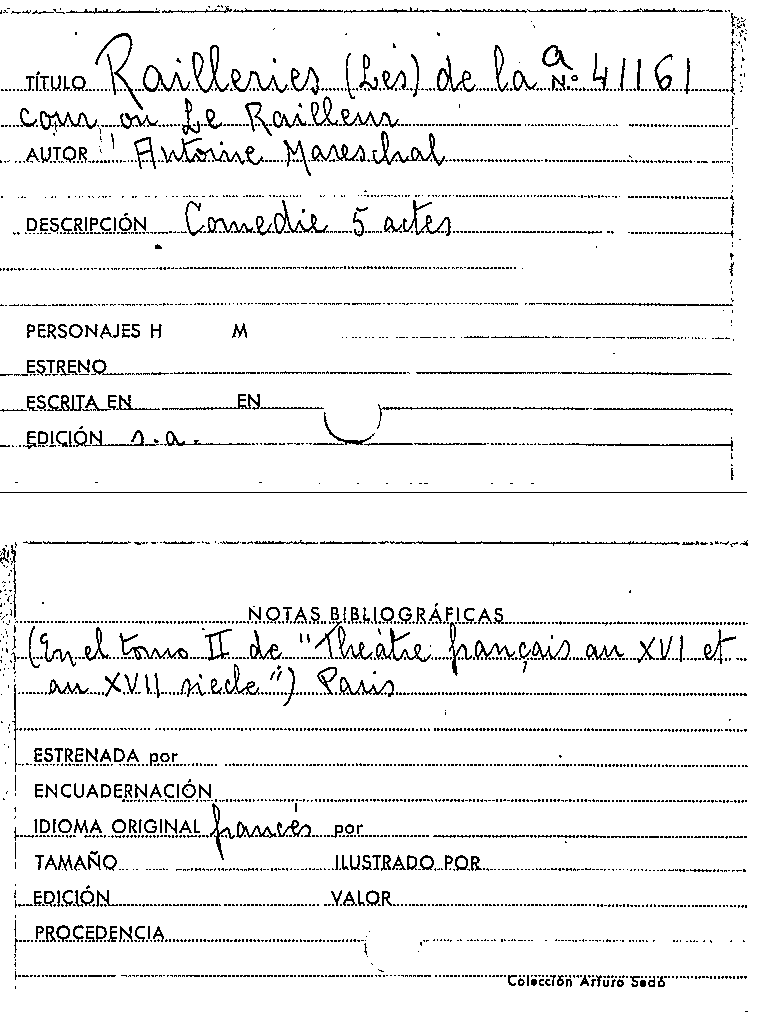 TÍTULO Railleries (Les) de la a N.º 41161
cour, ou Le Railleur
AUTOR Antoine Mareschal
DESCRIPCIÓN Comedie 5 actes
PERSONAJES H M
ESTRENO
ESCRITA EN EN
EDICIÓN s.a.
NOTAS BIBLIOGRÁFICAS
(En el tomo II de "Theâtre français au XVI et
au XVII siecle") Paris
ESTRENADA por
ENCUADERNACIÓN
IDIOMA ORIGINAL francés por
TAMAÑO ILUSTRADO POR
EDICIÓN VALOR
PROCEDENCIA
Colección Arturo Sedó